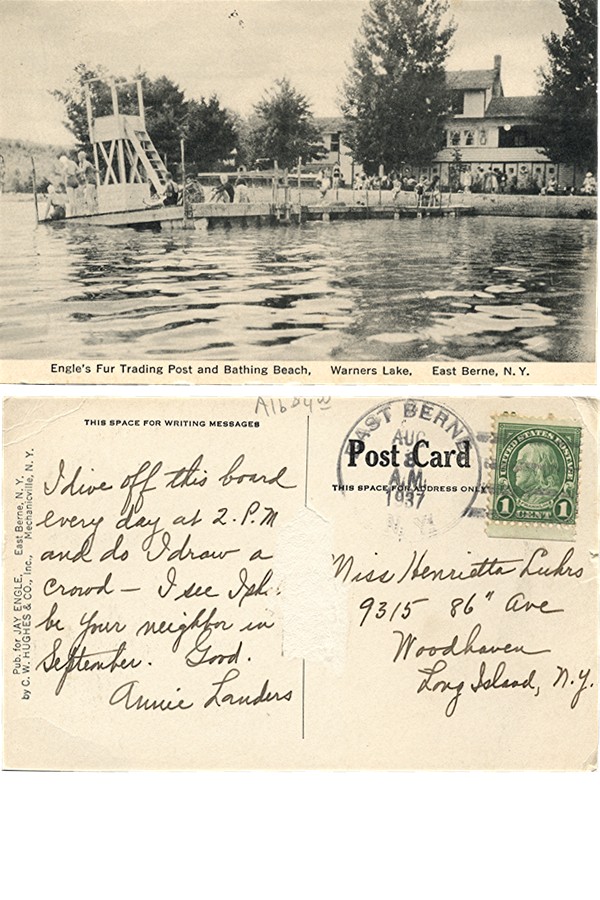 Engle's Fur Trading Post and Bathing Beach, Warners Lake, East Berne, N. Y.
Alb
THIS SPACE FOR WRITING MESSAGES
EAST BERNE
AUG
A.M.
1937
N. Y.
Post Card
THIS SPACE FOR ADDRESS ONLY
UNITED STATES POSTAGE
1 CENT 1
Pub. for JAY ENGLE, East Berne, N. Y.
by C. W. HUGHES & CO., Inc., Mechanicville, N. Y.
I dive off this board
every day at 2. P.M
and do I draw a
crowd – I see I
be your neighbor in
September. Good.
Annie Landers
Miss Henrietta Luhrs
9315 86" Ave
Woodhaven
Long Island, N.Y.